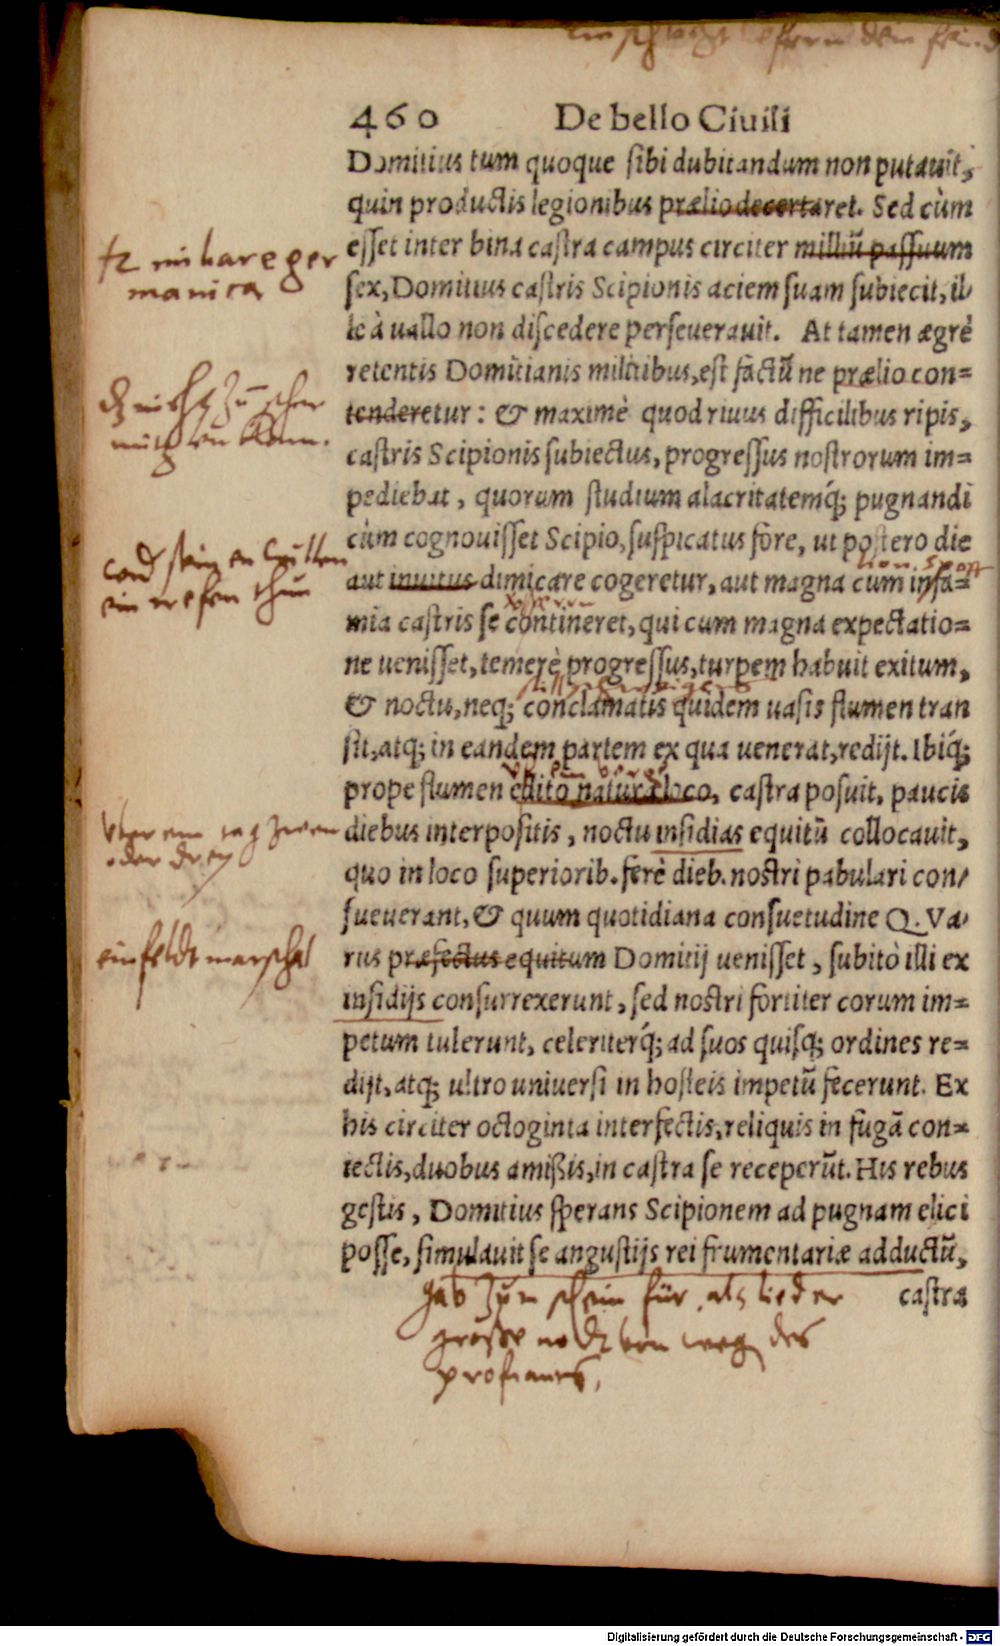 460 De bello Ciuili
Domitius tum quoque sibi dubitandum non putauit,
quin productis legionibus prælio decertaret. Sed cùm
esset inter bina castra campus circiter milliũ passuum
sex, Domitius castris Scipionis aciem suam subiecit, il-
le à uallo non discedere perseuerauit. At tamen ægrè
retentis Domitianis militibus, est factũ ne prælio con=
tenderetur: & maximè quod riuus difficilibus ripis,
castris Scipionis subiectus, progressus nostrorum im=
pediebat, quorum studium alacritatemq́; pugnandi
cùm cognouisset Scipio, suspicatus fore, ut postero die
aut inuitus dimicare cogeretur, aut magna cum infa=
mia castris se contineret, qui cum magna expectatio=
ne uenisset, temerè progressus, turpem habuit exitum,
& noctu, neq; conclamatis quidem uasis flumen tran
sit, atq; in eandem partem ex qua uenerat, redijt. Ibiq́;
prope flumen edito natura loco, castra posuit, paucis
diebus interpositis, noctu insidias equitũ collocauit,
quo in loco superiorib. ferè dieb. nostri pabulari con-
sueuerant, & quum quotidiana consuetudine Q. Va-
rus præfectus equitum Domitij uenisset, subitò illi ex
insidijs consurrexerunt, sed nostri fortiter eorum im=
petum tulerunt, celeriterq́; ad suos quisq; ordines re=
dijt, atq; ultro uniuersi in hosteis impetũ fecerunt. Ex
his circiter octoginta interfectis, reliquis in fugã con=
iectis, duobus amißis, in castra se receperũt. His rebus
gestis, Domitius sperans Scipionem ad pugnam elici
posse, simulauit se angustijs rei frumentariæ adductũ,
castra
manica
ein wesen thun
vber ein tag zween
oder drey
ein feldt marschal
gab zum schein für, als lied er
grosse nodt von weg des
profiants,
Digitalisierung gefördert durch die Deutsche Forschungsgemeinschaft - DFG